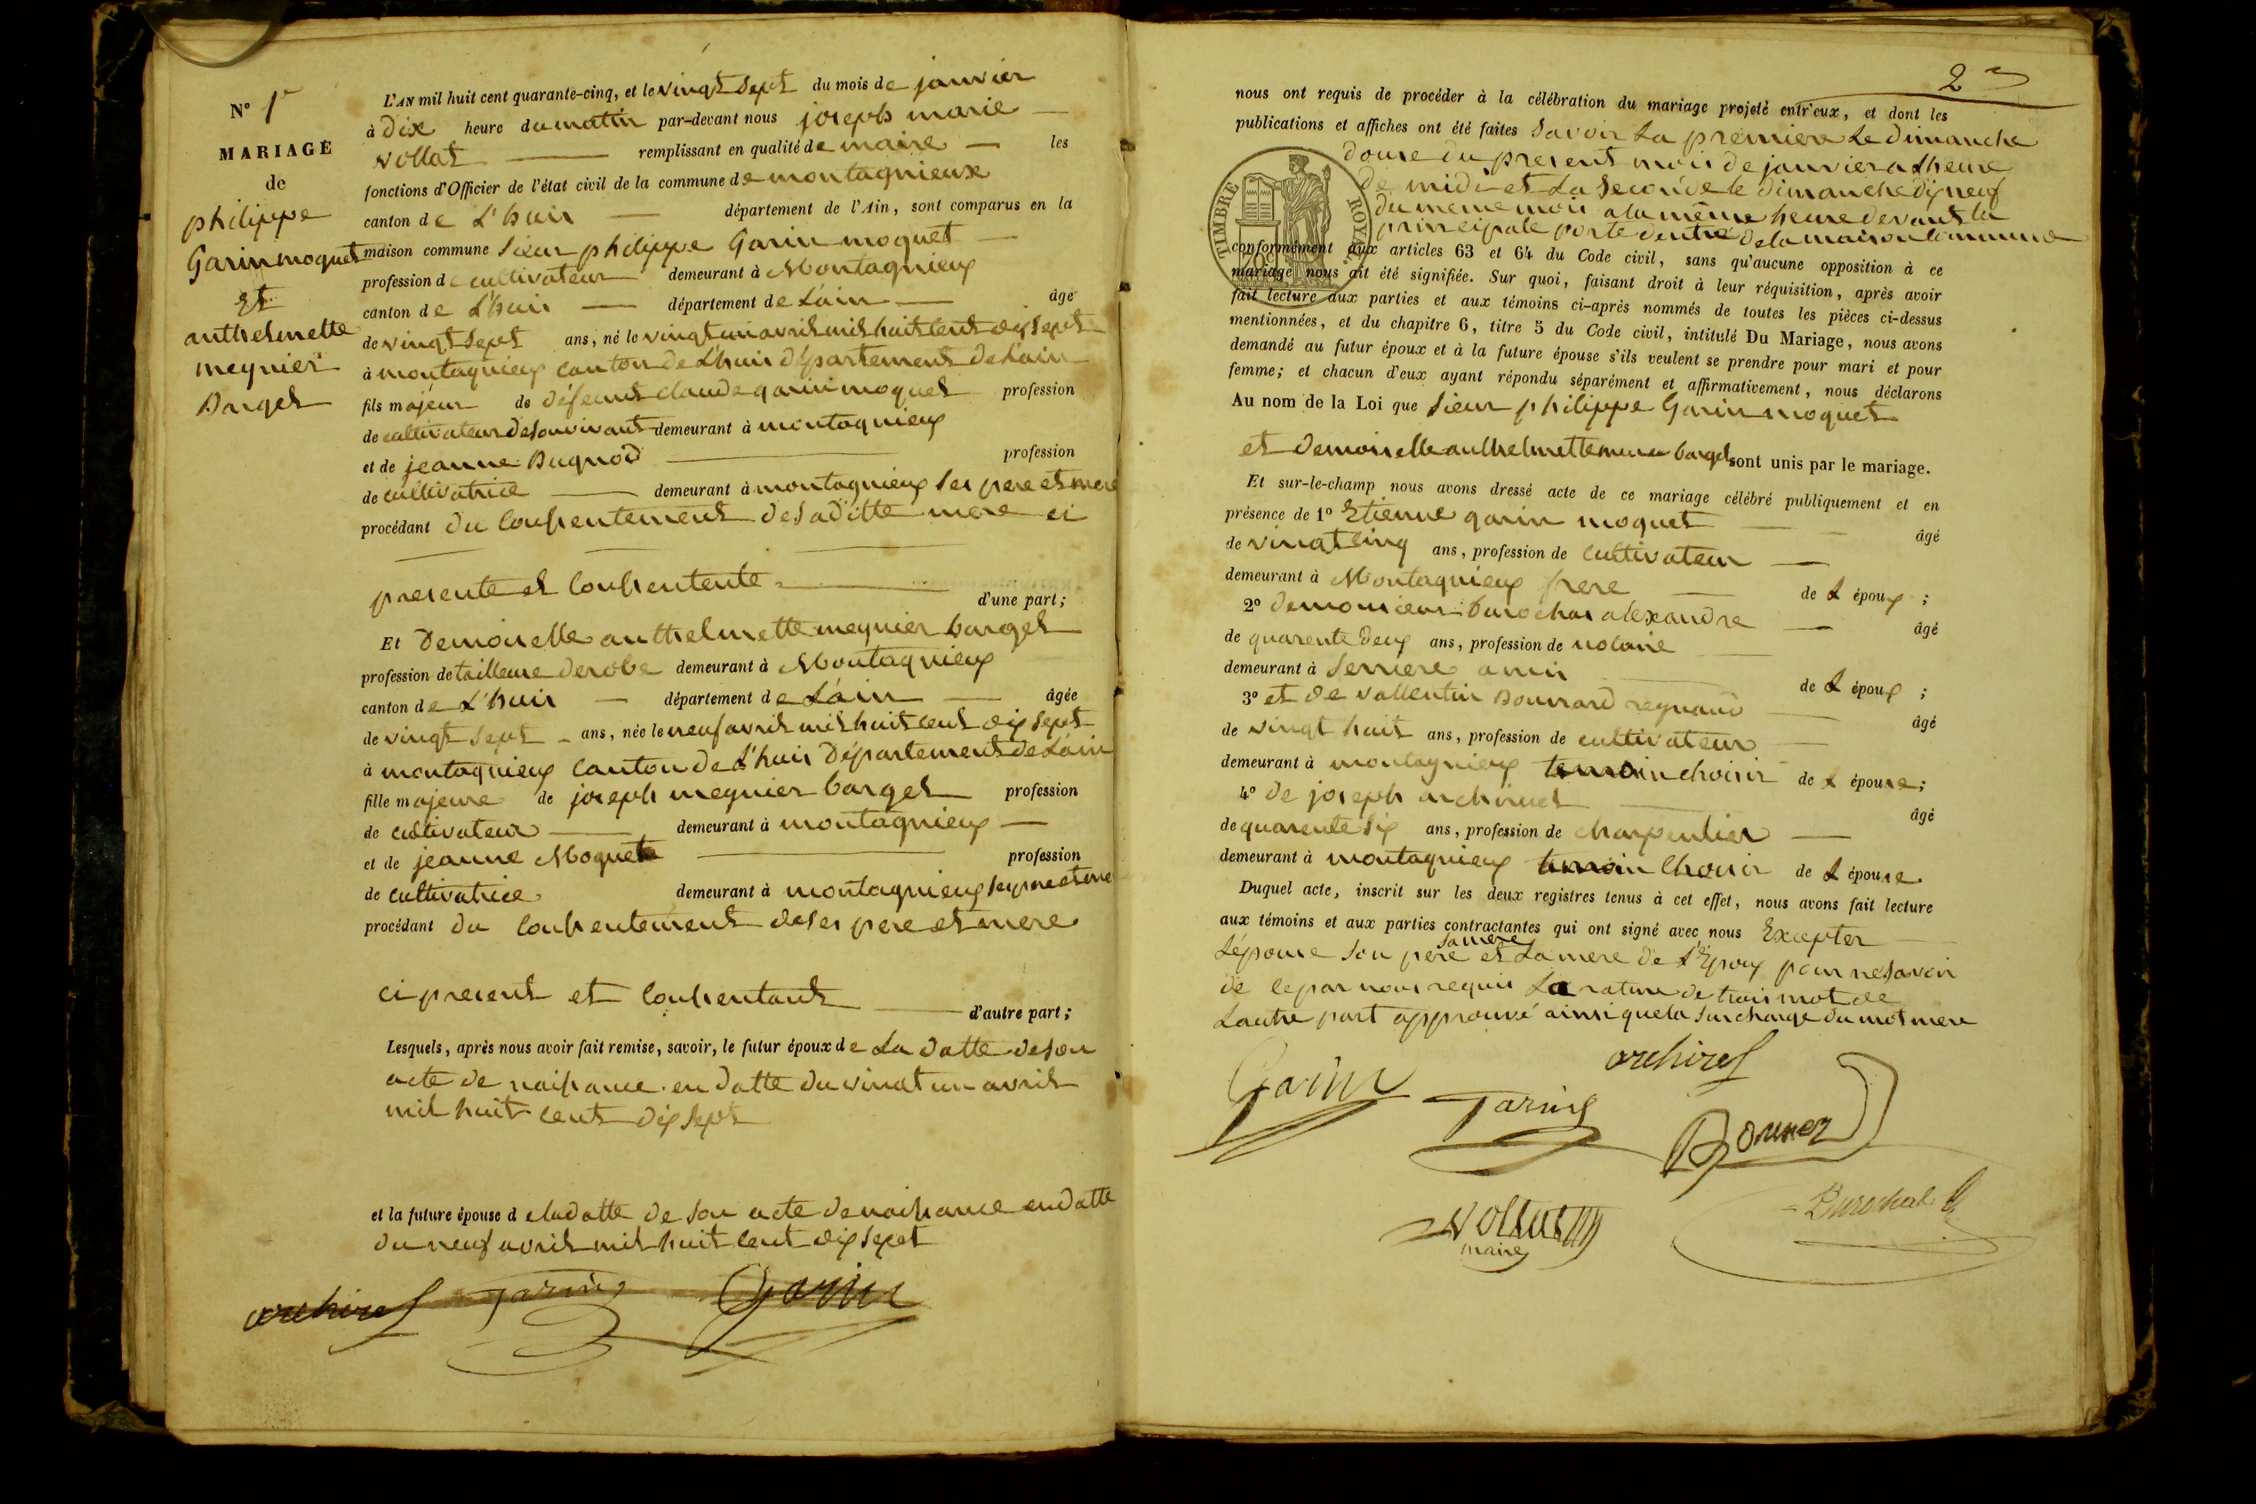 N° 1er
MARIAGE
de
philippe
Garin moquet
Et
anthelmette
meynier
Barget
L'AN mil huit cent quarante-cinq, et le vingt sept du mois de janvier
à dix heure du matin par-devant nous joseph marie
Vollat remplissant en qualité de maire les
fonctions d'Officier de l'état civil de la commune de montagnieux
canton de L'huis département de l'Ain, sont comparus en la
maison commune sieur philippe Garin moquet
profession de cultivateur demeurant à Montagnieux
canton de L'huis département de L'ain âgé
de vingt sept ans, né le vingt un avril mil huit cent dix sept
à montagnieux canton de L'huis département de L'ain
fils majeur de défeunt claude garin moquet profession
de cultivateur de son vivant demeurant à montagnieux
et de jeanne Bugnod profession
de cultivatrice demeurant à montagnieux ses pere et mere
procédant du consentement de sa ditte mere ci
presente et consentente d'une part;
Et Demoiselle anthelmette meynier barget
profession de tailleuse de robe demeurant à Montagnieux
canton de L'huis département de L'ain âgée
de vingt sept ans, née le neuf avril mil huit cent dix sept
à montagnieux canton de L'huis Département de L'ain
fille majeure de joseph meynier barget profession
de cultivateur demeurant à montagnieux
et de jeanne Moquet profession
de cultivatrice demeurant à montagnieux ses pere et mere
procédant du consentement de ses pere et mere
ci present et consentant d'autre part;
Lesquels, après nous avoir fait remise, savoir, le futur époux de La datte de son
acte de naissance en datte du vingt un avril
mil huit cent dix sept
et la future épouse de la datte de son acte de naissance en datte
du neuf avril mil huit cent dix sept
archirel Garin Garin
2e
nous ont requis de procéder à la célébration du mariage projeté entr'eux, et dont les
publications et affiches ont été faites Savoir La premiere Le dimanche
douse du present mois de janvier a Lheure
de midi et La seconde le dimanche dix neuf
du meme mois a la même heure devant la
principale porte dentré de la maison Commune
TIMBRE ROYAL
conformément aux articles 63 et 64 du Code civil, sans qu'aucune opposition à ce
mariage nous ait été signifiée. Sur quoi, faisant droit à leur réquisition, après avoir
fait lecture aux parties et aux témoins ci-après nommés de toutes les pièces ci-dessus
mentionnées, et du chapitre 6, titre 5 du Code civil, intitulé Du Mariage, nous avons
demandé au futur époux et à la future épouse s'ils veulent se prendre pour mari et pour
femme; et chacun d'eux ayant répondu séparément et affirmativement, nous déclarons
Au nom de la Loi que Sieur philippe Garin moquet
et demoiselle anthelmette barget sont unis par le mariage.
Et sur-le-champ nous avons dressé acte de ce mariage célébré publiquement et en
présence de 1° Etienne garin moquet âgé
de vingt cinq ans, profession de cultivateur
demeurant à Montagnieux frere de L époux ;
2° de monsieur burochas alexandre âgé
de quarente deux ans, profession de notaire
demeurant à Serriere amis de L époux ;
3° et de vallentin Bonnard reynaud âgé
de vingt huit ans, profession de cultivateur
demeurant à montagnieux temoin choisir de L épouse;
4° de joseph archirel âgé
de quarente six ans, profession de charpentier
demeurant à montagnieux temoin choisir de L épouse
Duquel acte, inscrit sur les deux registres tenus à cet effet, nous avons fait lecture
aux témoins et aux parties contractantes qui ont signé avec nous Excepter
sa mere
Lépouse son pere et La mere de L'Epoux pour ne Savoir
de ce par nous requis La rature de trois mot de
Lautre part approuvé ainsi que la surcharge du mot mere
Garin Garin archirel
Bonner
Vollat
maire
Burochal